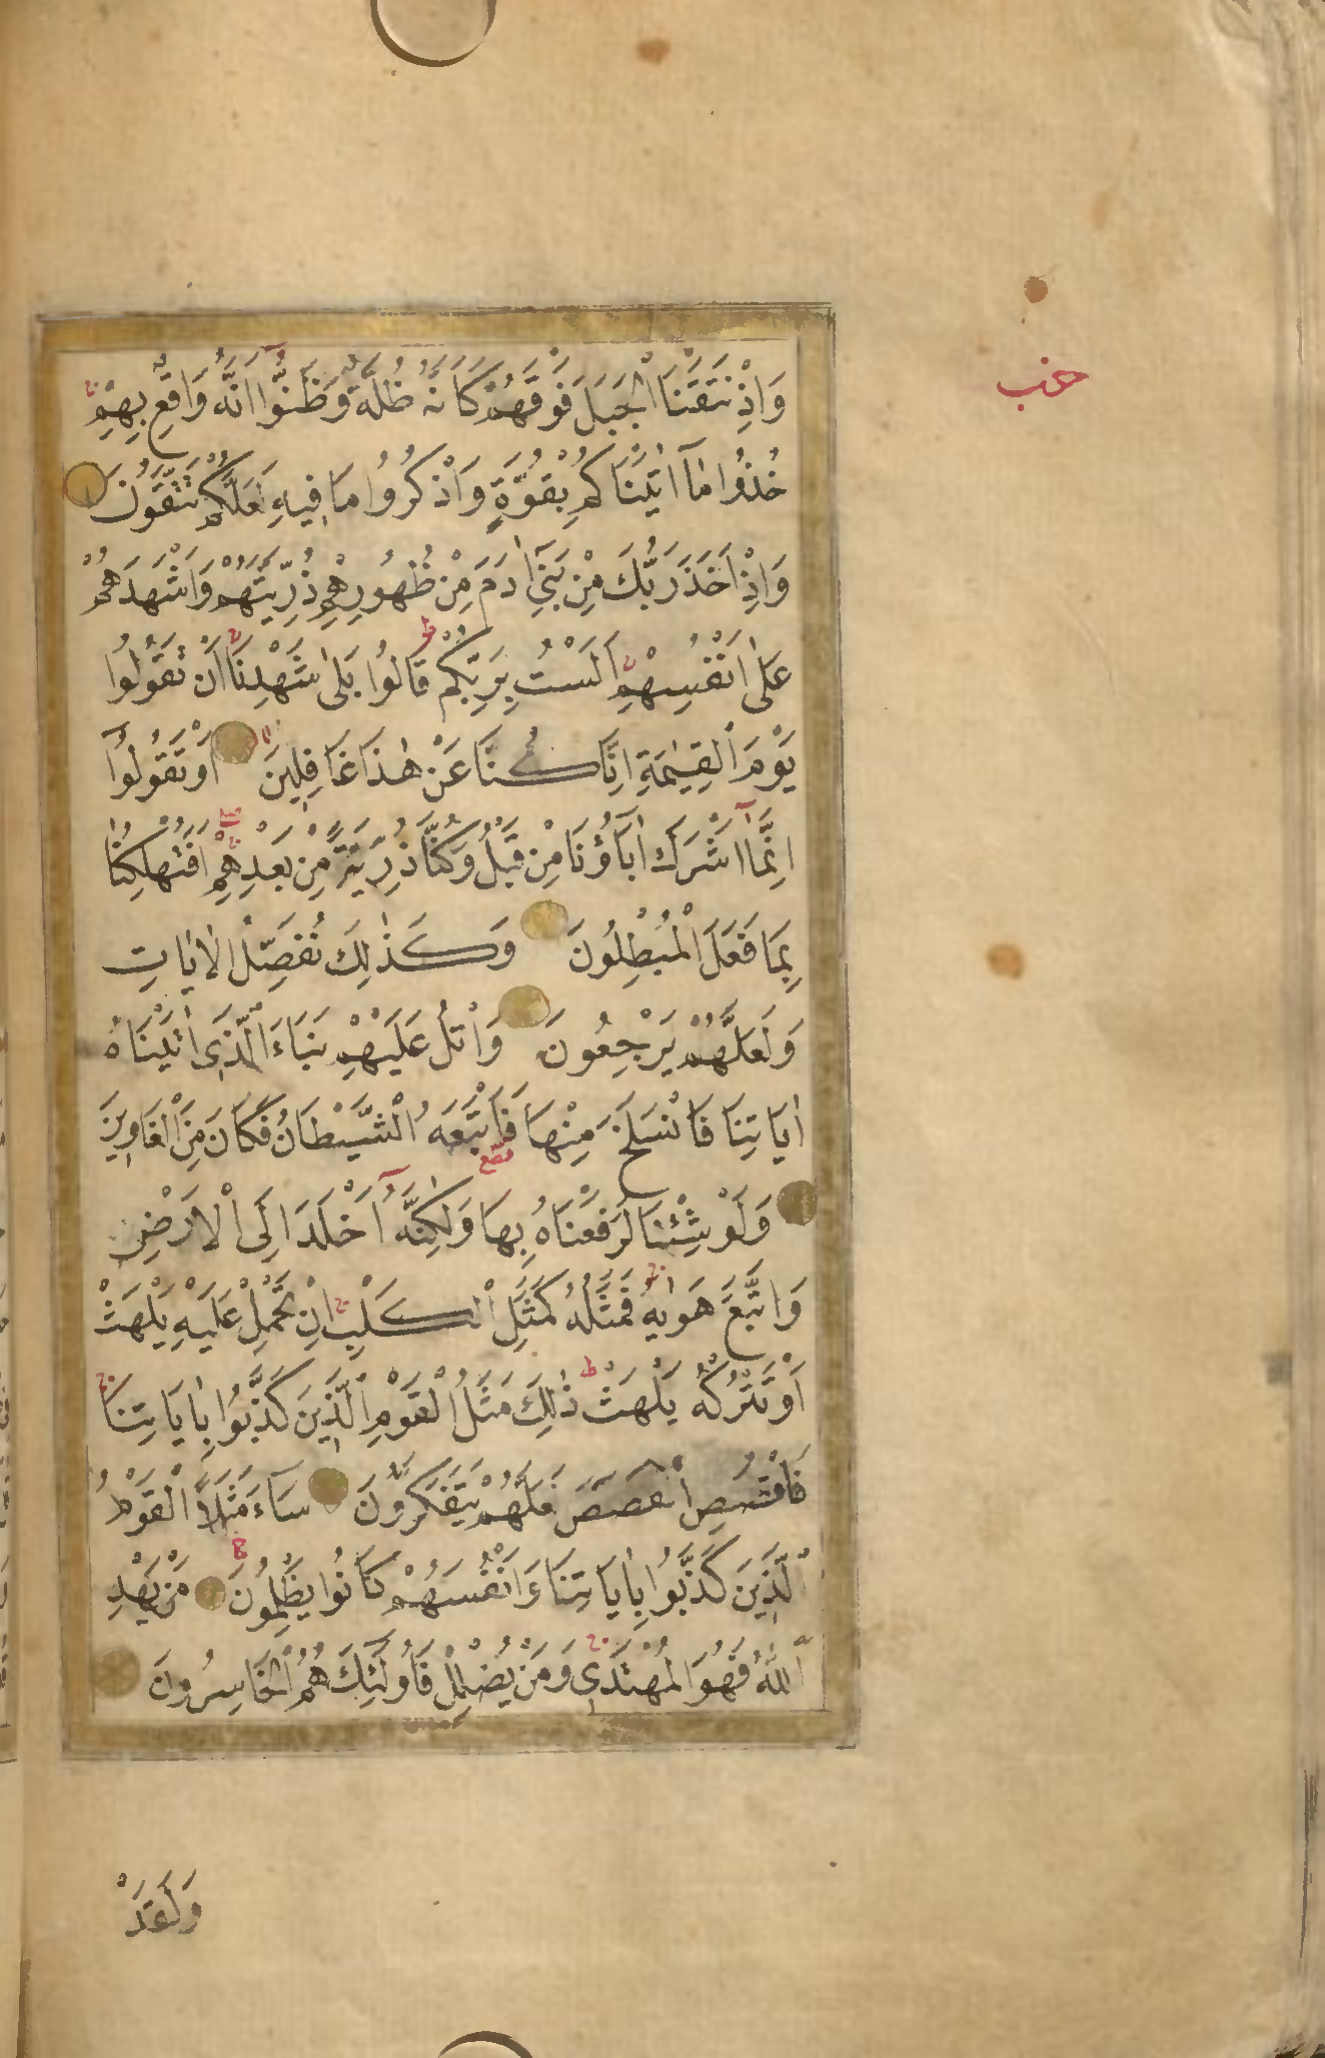 حزب
وَاِذْ نَتَقْنَا الْجَبَلَ فَوْقَهُمْ كَاَنَّهُ ظُلَّةٌ وَظَنُّٓوا اَنَّهُ وَاقِعٌ بِهِمْ
خُذُوا مَٓا اٰتَيْنَاكُمْ بِقُوَّةٍ وَاذْكُرُوا مَا فِيهِ لَعَلَّكُمْ تَتَّقُونَ
وَاِذْ اَخَذَ رَبُّكَ مِنْ بَنِٓي اٰدَمَ مِنْ ظُهُورِهِمْ ذُرِّيَّتَهُمْ وَاَشْهَدَهُمْ
عَلٰٓى اَنْفُسِهِمْ اَلَسْتُ بِرَبِّكُمْ قَالُوا بَلٰى شَهِدْنَا اَنْ تَقُولُوا
يَوْمَ الْقِيٰمَةِ اِنَّا كُنَّا عَنْ هٰذَا غَافِلِينَ اَوْ تَقُولُٓوا
اِنَّمَٓا اَشْرَكَ اٰبَٓاؤُنَا مِنْ قَبْلُ وَكُنَّا ذُرِّيَّةً مِنْ بَعْدِهِمْ اَفَتُهْلِكُنَا
بِمَا فَعَلَ الْمُبْطِلُونَ وَكَذٰلِكَ نُفَصِّلُ الْاٰيَاتِ
وَلَعَلَّهُمْ يَرْجِعُونَ وَاتْلُ عَلَيْهِمْ نَبَاَ الَّذِٓي اٰتَيْنَاهُ
اٰيَاتِنَا فَانْسَلَخَ مِنْهَا فَاَتْبَعَهُ الشَّيْطَانُ فَكَانَ مِنَ الْغَاوِينَ
وَلَوْ شِئْنَا لَرَفَعْنَاهُ بِهَا وَلٰكِنَّهُٓ اَخْلَدَ اِلَى الْاَرْضِ
وَاتَّبَعَ هَوٰيهُ فَمَثَلُهُ كَمَثَلِ الْكَلْبِ اِنْ تَحْمِلْ عَلَيْهِ يَلْهَثْ
اَوْ تَتْرُكْهُ يَلْهَثْ ذٰلِكَ مَثَلُ الْقَوْمِ الَّذِينَ كَذَّبُوا بِاٰيَاتِنَا
فَاقْصُصِ الْقَصَصَ لَعَلَّهُمْ يَتَفَكَّرُونَ سَٓاءَ مَثَلًا الْقَوْمُ
الَّذِينَ كَذَّبُوا بِاٰيَاتِنَا وَاَنْفُسَهُمْ كَانُوا يَظْلِمُونَ مَنْ يَهْدِ
اللّٰهُ فَهُوَ الْمُهْتَدِي وَمَنْ يُضْلِلْ فَاُولٰٓئِكَ هُمُ الْخَاسِرُونَ
وَلَقَدْ